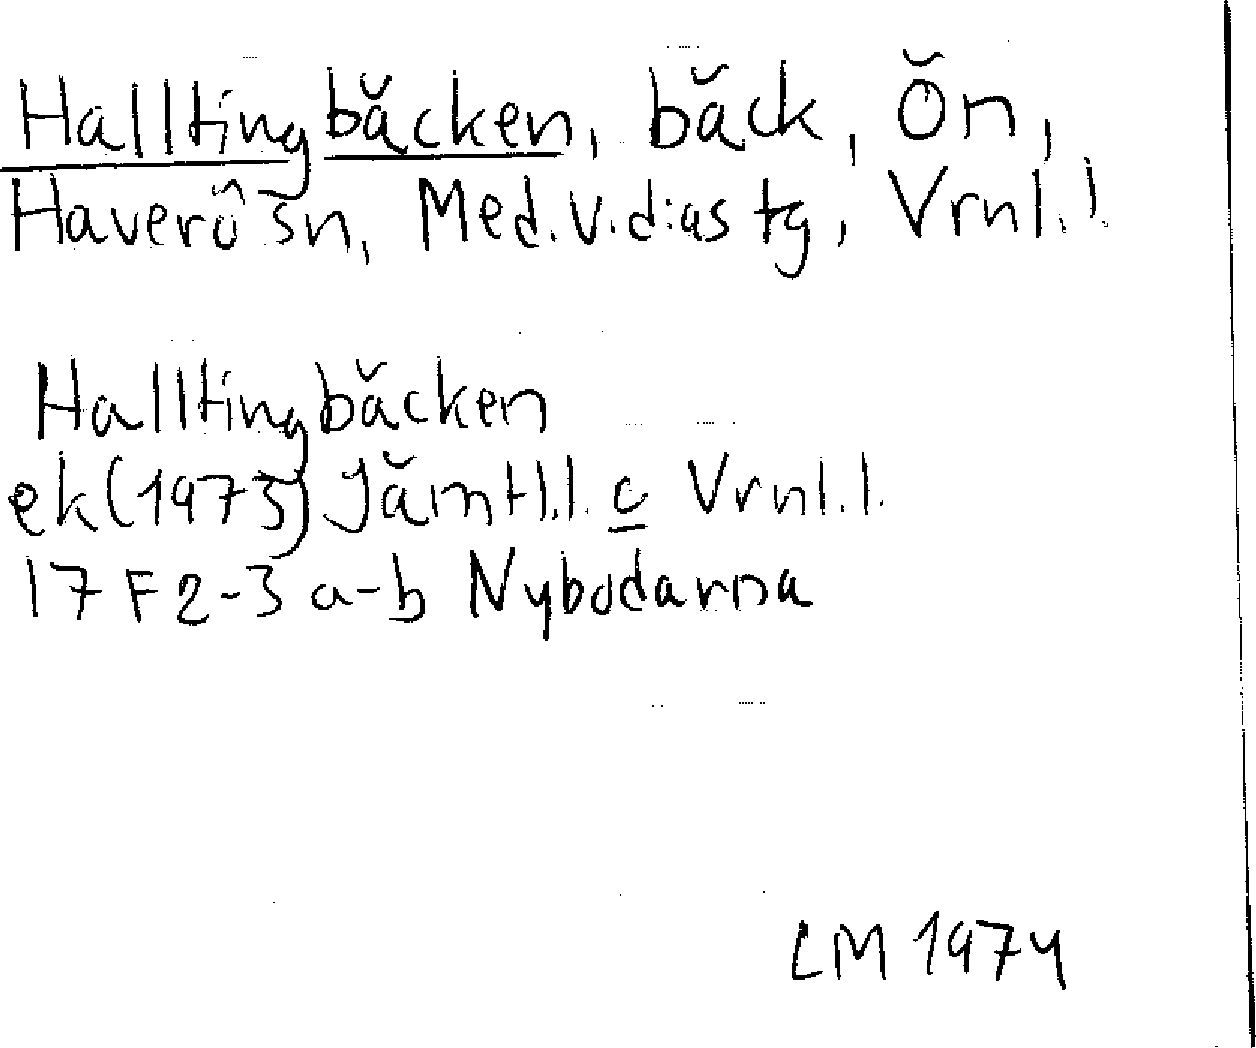 Halltingbäcken, bäck, Ön,
Haverö sn, Med.v.dias tg, Vrnl.l.
Halltingbäcken
ek(1973) Jämtl.l. c Vrnl.l.
17 F 2-3 a-b Nybodarna
LM 1974